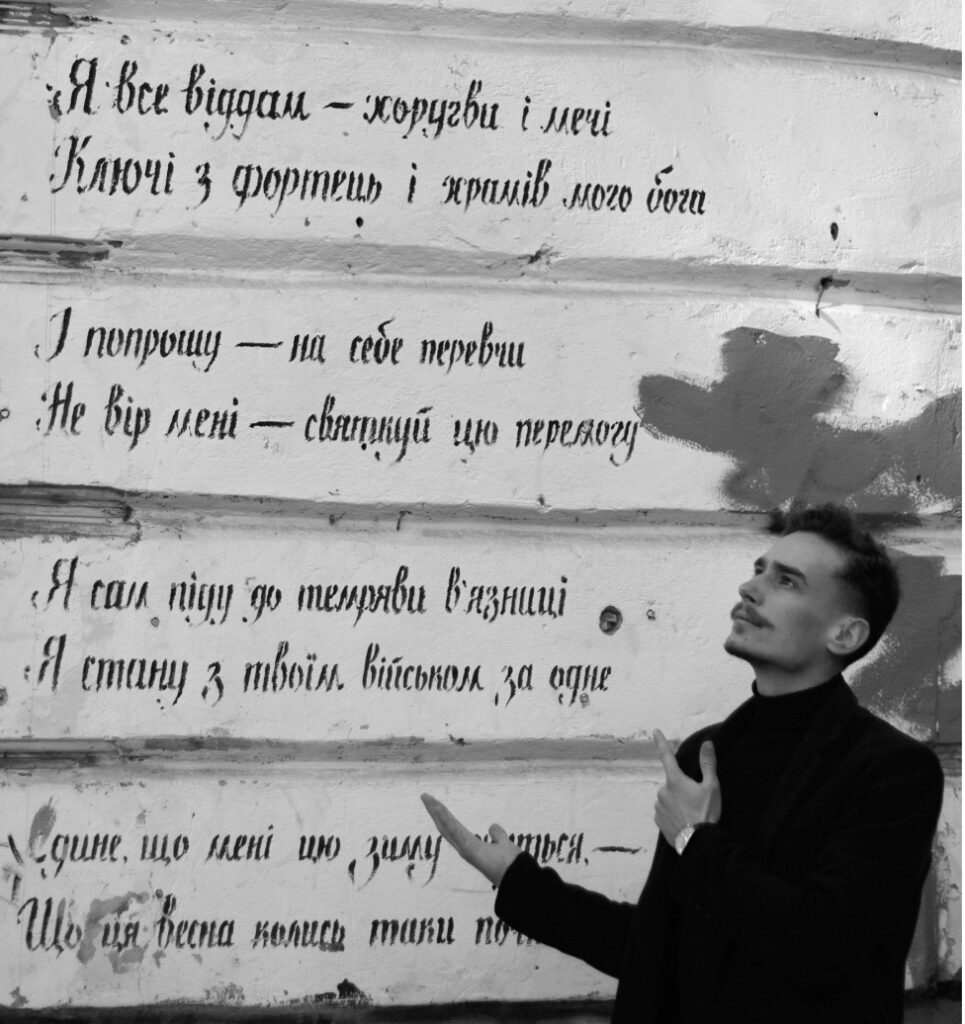 Я все віддам – хоругви і мечі
Ключі з фортець і храмів мого бога
І попрошу — на себе перевчи
Не вір мені — святкуй цю перемогу
Я сам піду до темряви в'язниці
Я стану з твоїм військом за одне
Єдине, що мені цю зиму —
Що ця весна колись таки